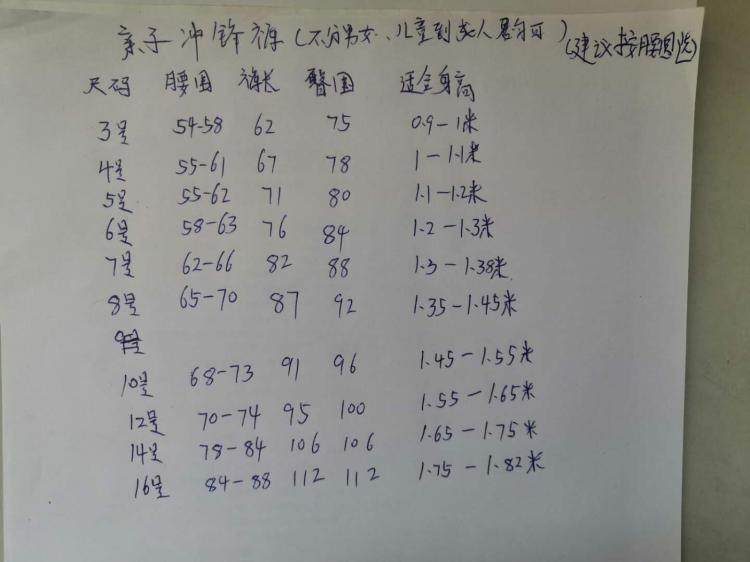 亲子冲锋裤(不分男女、儿童到老人都可)(建议按腰围选)
尺码 腰围 裤长 臀围 适合身高
3号 54-58 62 75 0.9-1米
4号 55-61 67 78 1-1.1米
5号 55-62 71 80 1.1-1.2米
6号 58-63 76 84 1.2-1.3米
7号 62-66 82 88 1.3-1.38米
8号 65-70 87 92 1.35-1.45米
10号 68-73 91 96 1.45-1.55米
12号 70-74 95 100 1.55-1.65米
14号 78-84 106 106 1.65-1.75米
16号 84-88 112 112 1.75-1.82米